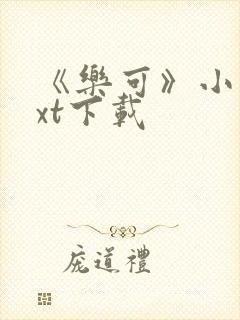 《樂可》小
xt下載
庞道禮